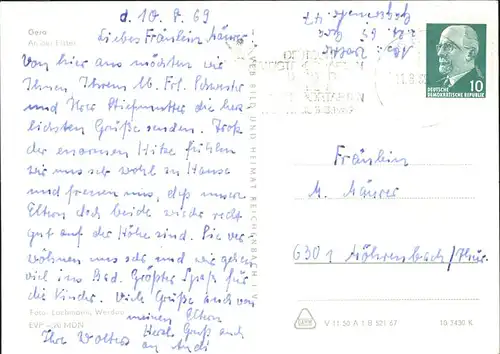 d. 10. 8. 69
Gera
An der Elster
Liebes Fräulein Mäurer!
Von hier aus möchten wir
Ihnen Ihrem lb. Frl. Schwester
und Ihrer Stiefmutter die herz
lichsten Grüße senden. Trotz
der enormen Hitze fühlen
wir uns sehr wohl zu Hause
und freuen uns, daß unsere
Eltern doch beide wieder recht
gut auf der Höhe sind. Sie ver
wöhnen uns sehr und wir gehen
viel ins Bad. Größter Spaß für
die Kinder. Viele Grüße auch von
meinen Eltern
Foto: Lachmann, Werdau
EVP MDN
Herzl. Gruß auch
Ihre Walters
an Andi
VEB BILD UND HEIMAT REICHENBACH I. V.
Abs. Walter
Gera
10
DEUTSCHE
DEMOKRATISCHE REPUBLIK
Fräulein
M. Mäurer
6301 Möhrenbach/Thür.
V 11 50 A 1 B 521 67